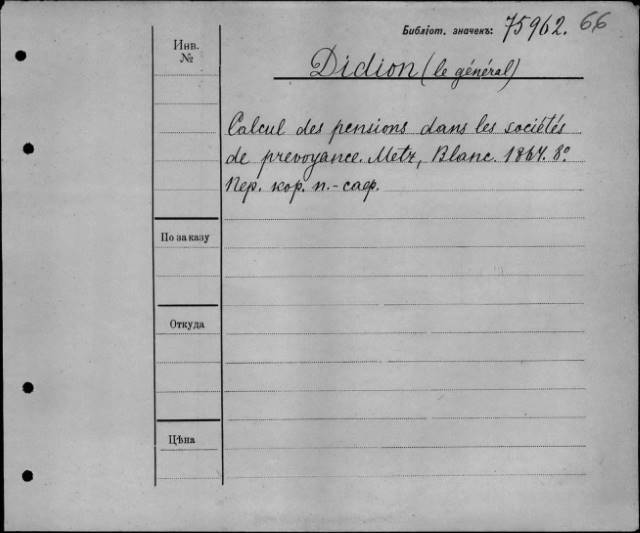 Библіот. значекъ: 75962. 66
Инв.
№
Didion (le général)
Calcul des pensions dans les sociétés
de prevoyance. Metz, Blanc. 1864. 8°.
Пер. кор. п.-саф.
По заказу
Откуда
Цѣна